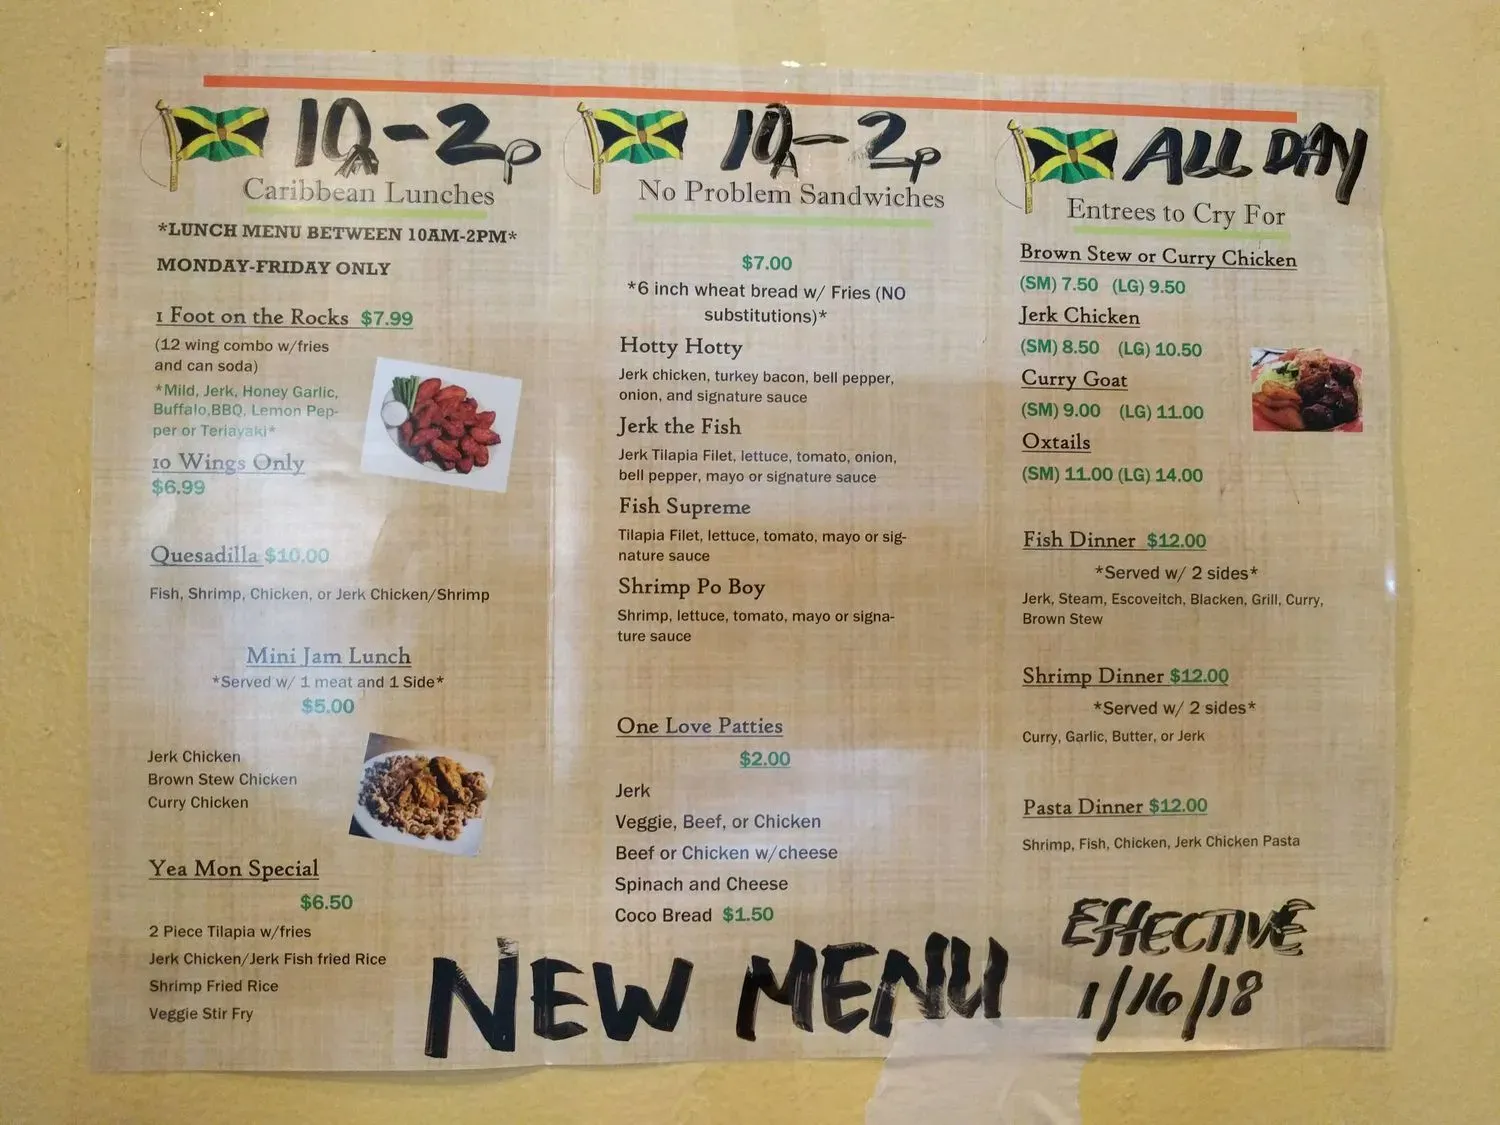 10A-2p
Caribbean Lunches
*LUNCH MENU BETWEEN 10AM-2PM*
MONDAY-FRIDAY ONLY
1 Foot on the Rocks $7.99
(12 wing combo w/fries
and can soda)
*Mild, Jerk, Honey Garlic,
Buffalo,BBQ, Lemon Pep-
per or Teriayaki*
10 Wings Only
$6.99
Quesadilla $10.00
Fish, Shrimp, Chicken, or Jerk Chicken/Shrimp
Mini Jam Lunch
*Served w/ 1 meat and 1 Side*
$5.00
Jerk Chicken
Brown Stew Chicken
Curry Chicken
Yea Mon Special
$6.50
2 Piece Tilapia w/fries
Jerk Chicken/Jerk Fish fried Rice
Shrimp Fried Rice
Veggie Stir Fry
10A-2p
No Problem Sandwiches
$7.00
*6 inch wheat bread w/ Fries (NO
substitutions)*
Hotty Hotty
Jerk chicken, turkey bacon, bell pepper,
onion, and signature sauce
Jerk the Fish
Jerk Tilapia Filet, lettuce, tomato, onion,
bell pepper, mayo or signature sauce
Fish Supreme
Tilapia Filet, lettuce, tomato, mayo or sig-
nature sauce
Shrimp Po Boy
Shrimp, lettuce, tomato, mayo or signa-
ture sauce
One Love Patties
$2.00
Jerk
Veggie, Beef, or Chicken
Beef or Chicken w/cheese
Spinach and Cheese
Coco Bread $1.50
ALL DAY
Entrees to Cry For
Brown Stew or Curry Chicken
(SM) 7.50 (LG) 9.50
Jerk Chicken
(SM) 8.50 (LG) 10.50
Curry Goat
(SM) 9.00 (LG) 11.00
Oxtails
(SM) 11.00 (LG) 14.00
Fish Dinner $12.00
*Served w/ 2 sides*
Jerk, Steam, Escoveitch, Blacken, Grill, Curry,
Brown Stew
Shrimp Dinner $12.00
*Served w/ 2 sides*
Curry, Garlic, Butter, or Jerk
Pasta Dinner $12.00
Shrimp, Fish, Chicken, Jerk Chicken Pasta
NEW MENU
EFFECTIVE
1/16/18